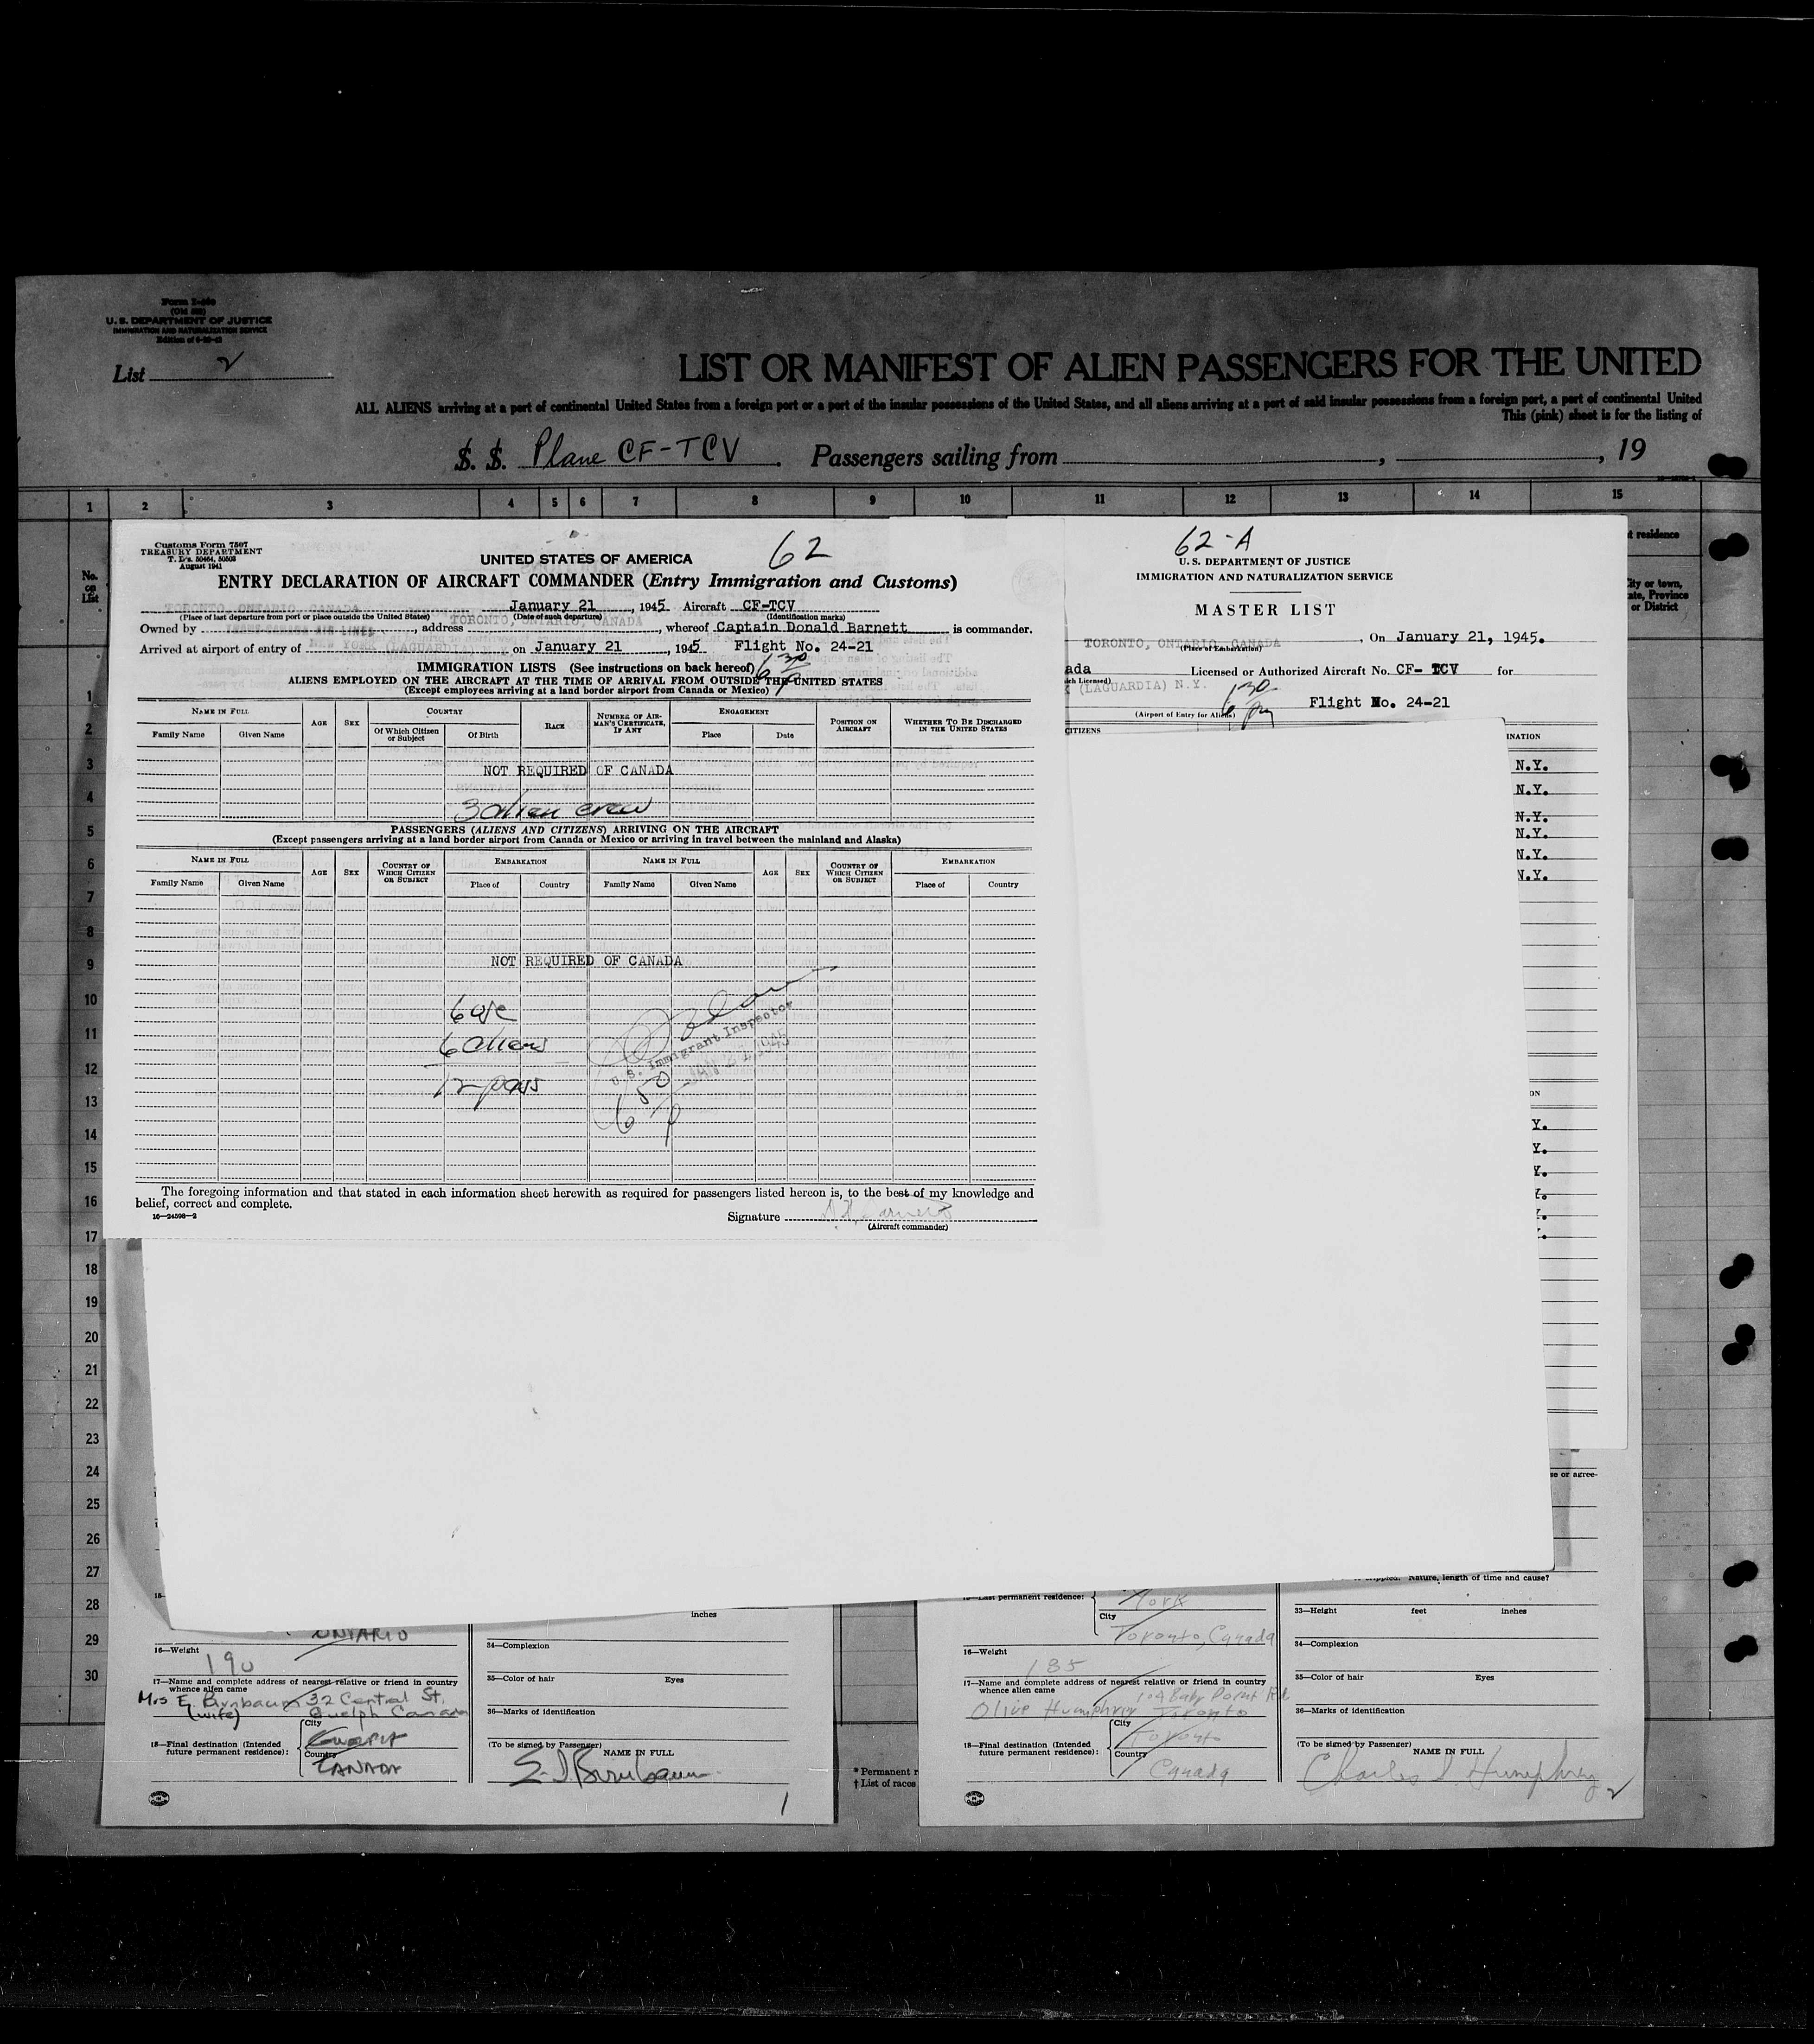 Form I-466
U. S. DEPARTMENT OF JUSTICE
IMMIGRATION AND NATURALIZATION SERVICE
List 2
LIST OR MANIFEST OF ALIEN PASSENGERS FOR THE UNITED
ALL ALIENS arriving at a port of continental United States from a foreign port or a port of the insular possessions of the United States, and all aliens arriving at a port of said insular possessions from a foreign port, a port of continental United
This (pink) sheet is for the listing of
S. S. Plane CF-TCV. Passengers sailing from , , 19
1 2 3 4 5 6 7 8 9 10 11 12 13 14 15
No. on List
t residence
City or town, ate, Province or District
Customs Form 7507
TREASURY DEPARTMENT
T. D.'s. 50464, 50503
August 1941
62
UNITED STATES OF AMERICA
ENTRY DECLARATION OF AIRCRAFT COMMANDER (Entry Immigration and Customs)
TORONTO, ONTARIO, CANADA January 21, 1945 Aircraft CF-TCV
(Place of last departure from port or place outside the United States) (Date of such departure) (Identification marks)
Owned by TRANS-CANADA AIR LINES, address TORONTO, ONTARIO, CANADA, whereof Captain Donald Barnett is commander.
Arrived at airport of entry of NEW YORK (LAGUARDIA) N.Y. on January 21, 1945 Flight No. 24-21
IMMIGRATION LISTS (See instructions on back hereof) 6 30 P
ALIENS EMPLOYED ON THE AIRCRAFT AT THE TIME OF ARRIVAL FROM OUTSIDE THE UNITED STATES
(Except employees arriving at a land border airport from Canada or Mexico)
NAME IN FULL AGE SEX COUNTRY RACE NUMBER OF AIRMAN'S CERTIFICATE, IF ANY ENGAGEMENT POSITION ON AIRCRAFT WHETHER TO BE DISCHARGED IN THE UNITED STATES
Family Name Given Name Of Which Citizen or Subject Of Birth Place Date
NOT REQUIRED OF CANADA
3 alien crew
PASSENGERS (ALIENS AND CITIZENS) ARRIVING ON THE AIRCRAFT
(Except passengers arriving at a land border airport from Canada or Mexico or arriving in travel between the mainland and Alaska)
NAME IN FULL AGE SEX COUNTRY OF WHICH CITIZEN OR SUBJECT EMBARKATION NAME IN FULL AGE SEX COUNTRY OF WHICH CITIZEN OR SUBJECT EMBARKATION
Family Name Given Name Place of Country Family Name Given Name Place of Country
NOT REQUIRED OF CANADA
6 usc
6 aliens
12 pass
U. S. Immigrant Inspector
JAN 21 1945
6 50 P
The foregoing information and that stated in each information sheet herewith as required for passengers listed hereon is, to the best of my knowledge and
belief, correct and complete.
16—24598-2
Signature
(Aircraft commander)
62-A
U. S. DEPARTMENT OF JUSTICE
IMMIGRATION AND NATURALIZATION SERVICE
MASTER LIST
TORONTO, ONTARIO, CANADA, On January 21, 1945.
(Place of Embarkation)
ada Licensed or Authorized Aircraft No. CF- TCV for
ich Licensed)
(LAGUARDIA) N.Y. 6 30 pm Flight No. 24-21
(Airport of Entry for Aliens)
CITIZENS
INATION
N.Y.
N.Y.
N.Y.
N.Y.
N.Y.
N.Y.
ON
Y.
Y.
Y.
Y.
Y.
Y.
1
2
3
4
5
6
7
8
9
10
11
12
13
14
15
16
17
18
19
20
21
22
23
24
25
26
27
28
29
30
se or agree-
inches
ONTARIO
16—Weight 190
17—Name and complete address of nearest relative or friend in country whence alien came
Mrs E. Birnbaum 32 Central St.
(wife) Guelph Canada
18—Final destination (Intended future permanent residence):
City Guelph
Country CANADA
34—Complexion
35—Color of hair Eyes
36—Marks of identification
(To be signed by Passenger)
NAME IN FULL
E. I. Birnbaum
1
* Permanent r
† List of races
Nature, length of time and cause?
permanent residence:
York
City
Toronto, Canada
16—Weight
185
17—Name and complete address of nearest relative or friend in country whence alien came
104 Baby Point Rd
Olive Humphrey Toronto
18—Final destination (Intended future permanent residence):
City Toronto
Country Canada
33—Height feet inches
34—Complexion
35—Color of hair Eyes
36—Marks of identification
(To be signed by Passenger)
NAME IN FULL
Charles S. Humphrey
2